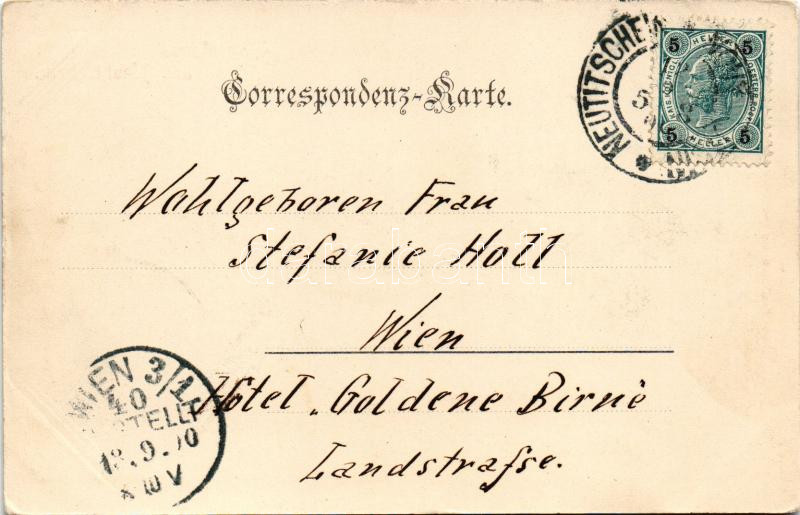 Correspondenz-Karte.
NEUTITSCHEIN
5
5
HELLER
5
5
Wohlgeboren Frau
Stefanie Holl
Wien
Hotel „Goldene Birne
Landstrasse.
WIEN 3/1
40
BESTELLT
18.9.00
darabanth